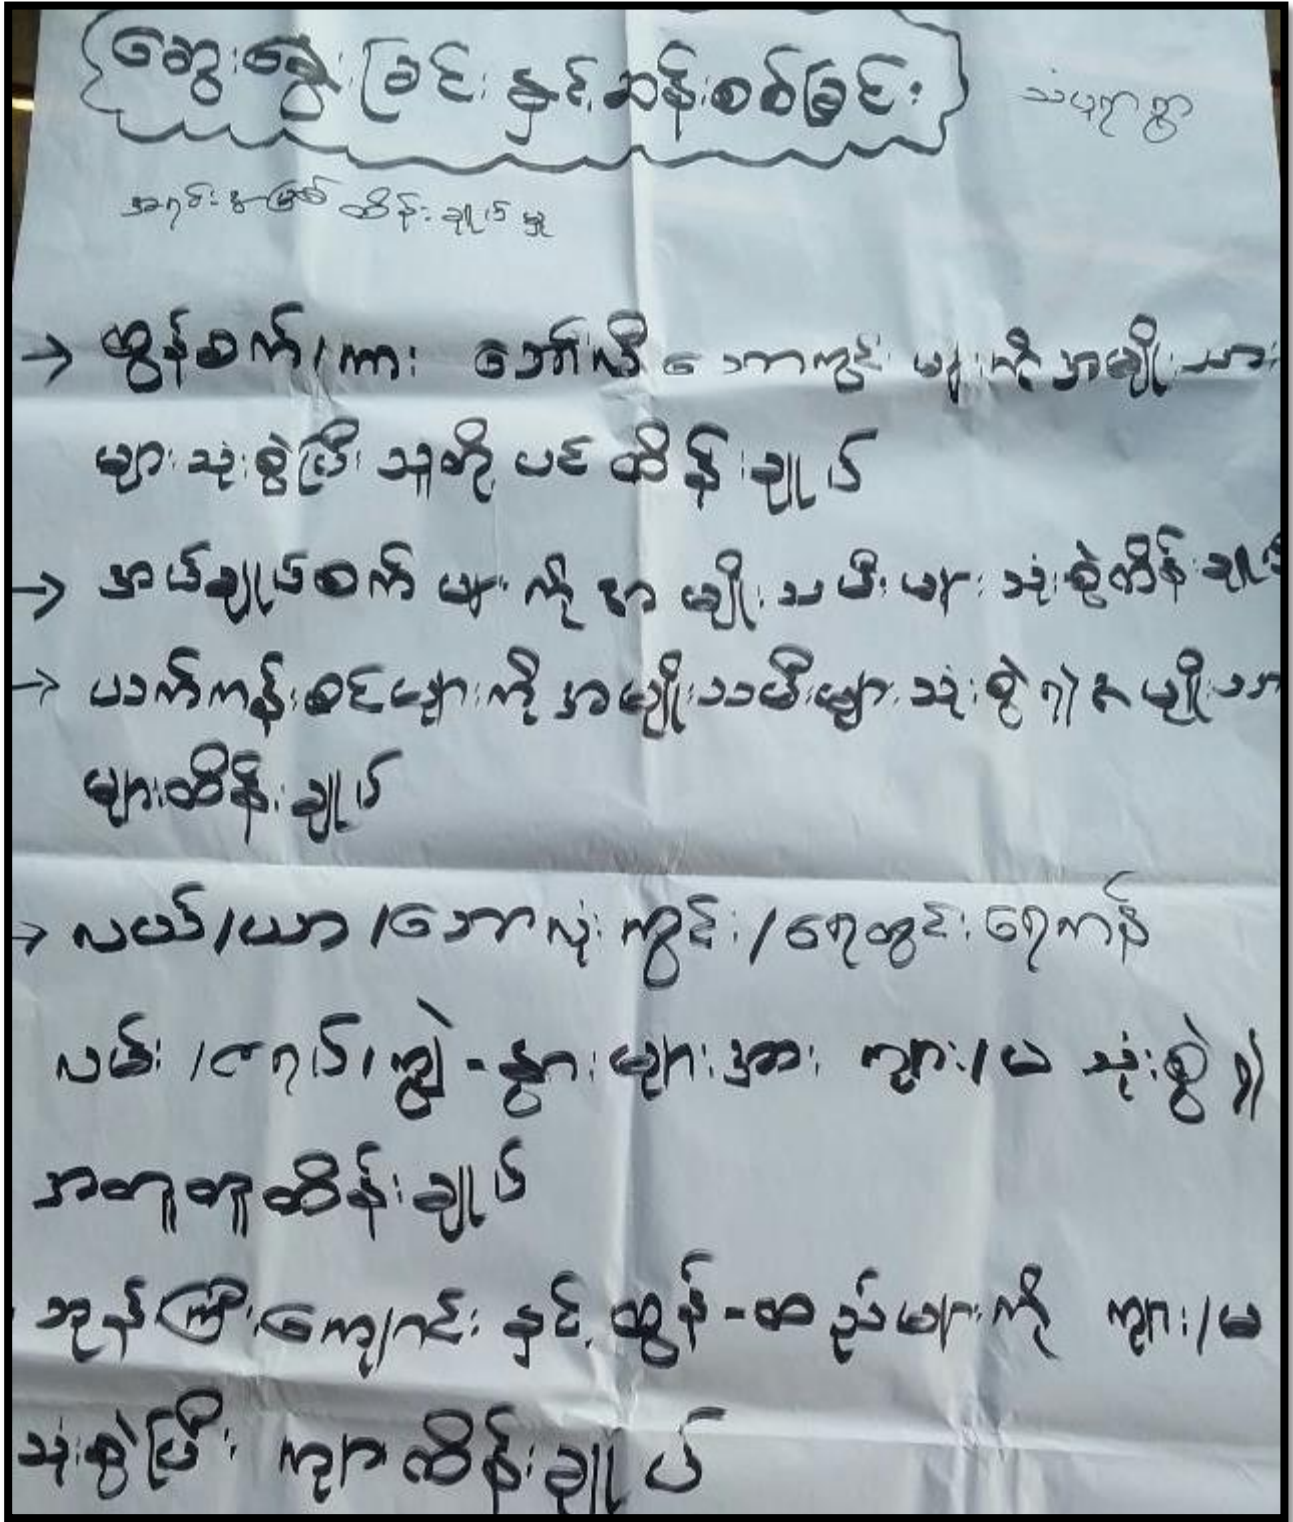 ဆွေးနွေးခြင်း နှင့် ဆန်းစစ်ခြင်း
သံပုရာရွာ
အရင်းအမြစ် ထိန်းချုပ်မှု
→ ထွန်စက်/ကား ဘော်လီဘောကွင်း များကို အမျိုးသား
များ သုံးစွဲပြီး သူတို့ပင် ထိန်းချုပ်
→ အပ်ချုပ်စက် များကို အမျိုးသမီးများ သုံးစွဲထိန်းချုပ်
→ ယက်ကန်းစင်များကို အမျိုးသမီးများ သုံးစွဲ၍ အမျိုးသာ
များထိန်းချုပ်
→ လယ်/ယာ/ဘောလုံးကွင်း/ရေတွင်းရေကန်
လမ်း/ဇရပ်/ကျွဲ-နွားများအား ကျား/မ သုံးစွဲ၍
အတူတူထိန်းချုပ်
ဘုန်းကြီးကျောင်း နှင့် ထွန်-ထည်များကို ကျား/မ
သုံးစွဲပြီး ကျားထိန်းချုပ်